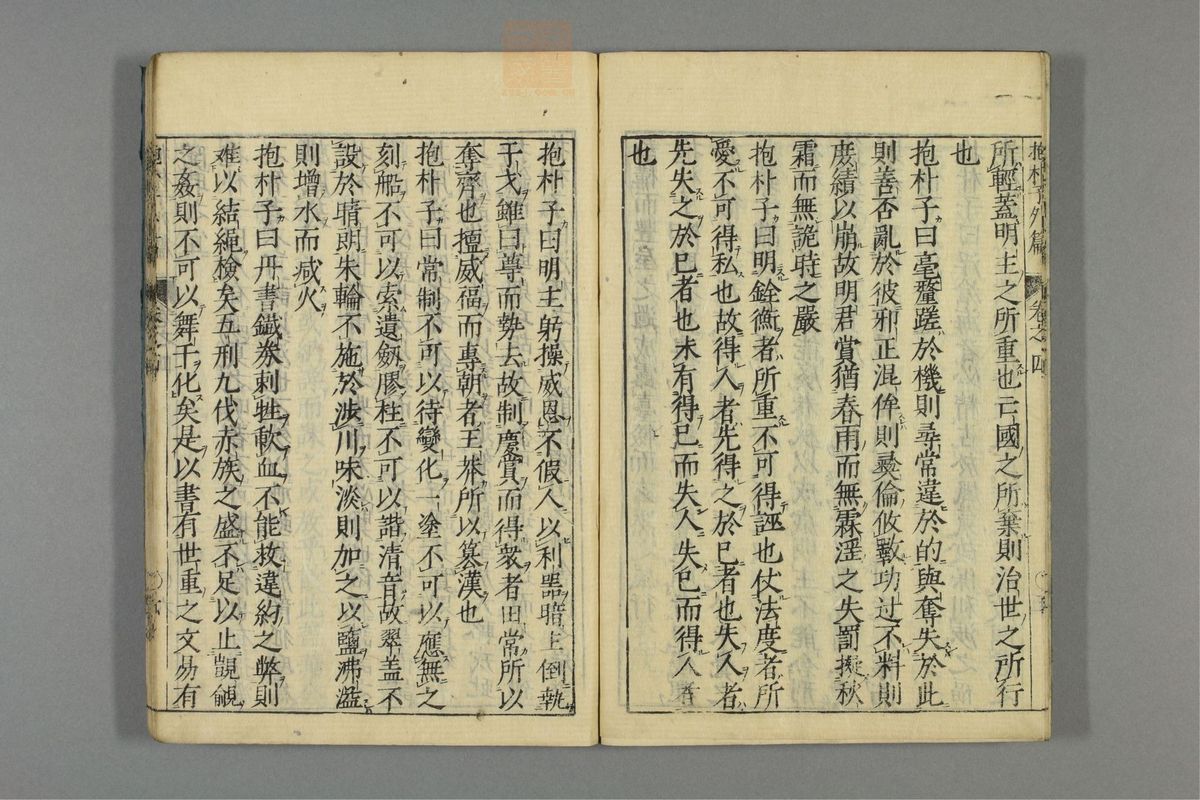 抱朴子外篇 卷之四
所輕蓋明主之所重也亡國之所棄則治世之所行
也
抱朴子曰毫釐蹉於機則尋常違於的與奪失於此
則善否亂於彼邪正混侔則彞倫攸斁功过不料則
庶績以崩故明君賞猶春雨而無霖淫之失罰擬秋
霜而無詭時之嚴
抱朴子曰明銓衡者所重不可得誣也仗法度者所
愛不可得私也故得人者先得之於己者也失人者
先失之於己者也未有得己而失人失己而得人者
也
抱朴子曰明主躬操威恩不假人以利器暗主倒執
干戈雖曰尊而勢去故制慶賞而得衆者田常所以
奪齊也擅威福而專朝者王莽所以篡漢也
抱朴子曰常制不可以待變化一塗不可以應無之
刻船不可以索遺劔膠柱不可以諧清音故翠盖不
設於晴朗朱輪不施於涉川味淡則加之以鹽沸溢
則增水而减火
抱朴子曰丹書鐵券刺牲歃血不能救違約之弊則
难以結繩檢矣五刑九伐赤族之盛不足以止覬覦
之姦則不可以舞干化矣是以書有世重之文易有